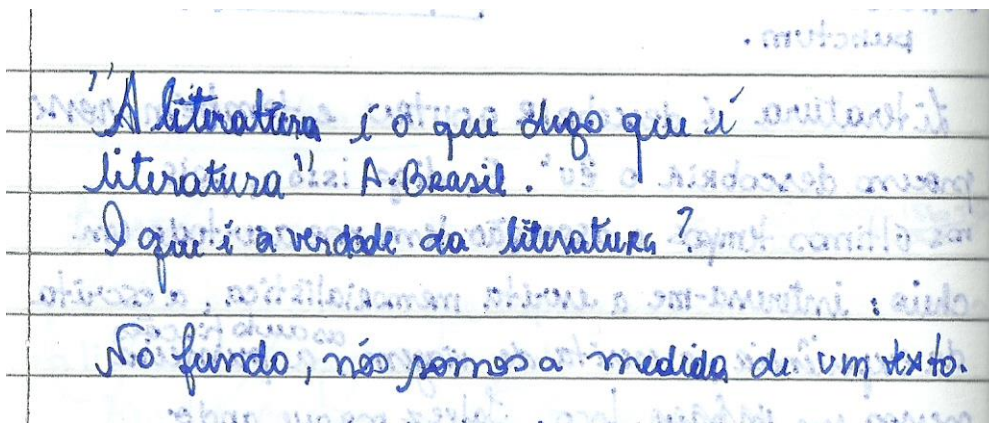 "A literatura é o que digo que é
literatura" A. Brasil.
O que é a verdade da literatura?
No fundo, nós somos a medida de um texto.